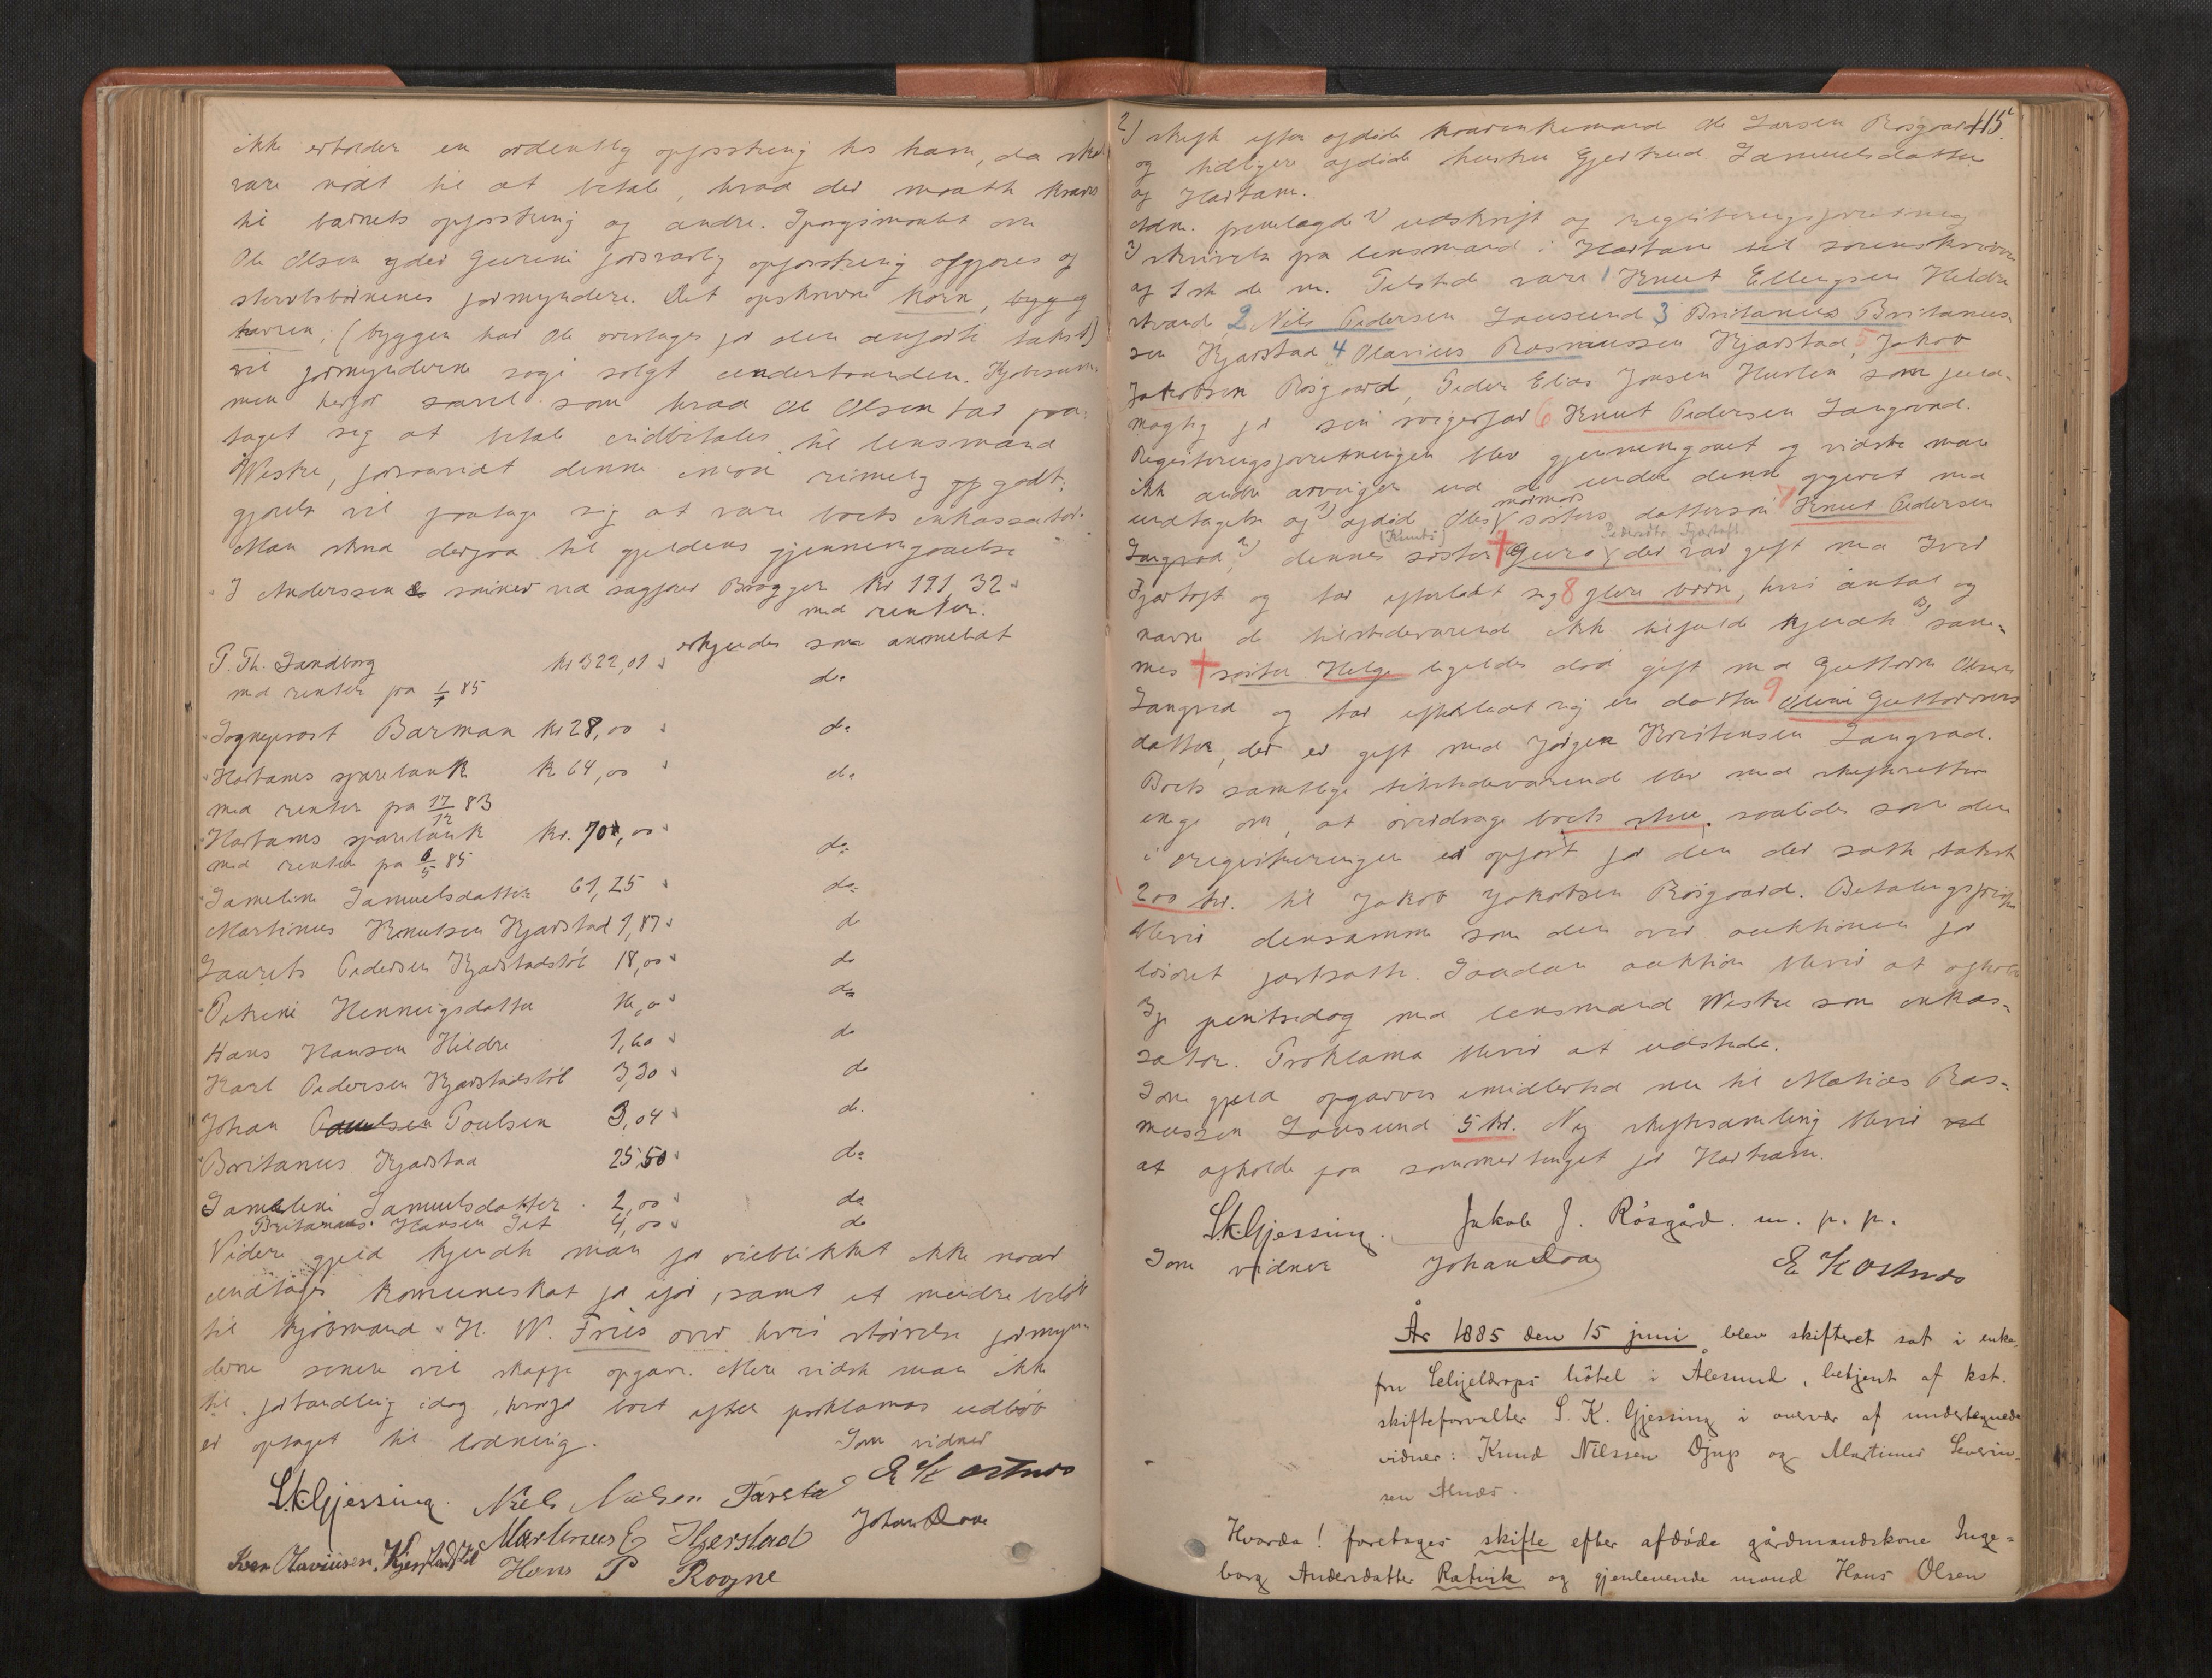 ikke erholder en ordentlig opfostring hos ham, da skal
være nødt til at betale, hvad der maatte kræves
til barnets opfostring og andre. Spørgsmaalet om
Ole Olsen yder Gurine forsvarlig opfostring afgjøres af
stervbobørnenes formyndere. Det opskrevne korn, byg og
havren, (byggen har Ole overtaget for den anførte takst)
vil formynderne søge solgt underhaanden. Kjøbesum-
men herfor saavel som hvad Ole Olsen har paa-
taget sig at betale indbetales til lensmand
Westre, forsaavidt denne imod rimelig godt-
gjørelse vil paatage sig at være boets inkassator.
Man skred derpaa til gjeldens gjennemgaaelse
J Anderssen sønner ved sagfører Brøgger kr 191,32
med renter.
erkjendes som anmeldt
P. Th. Sandborg kr 322,01
med renter fra 1/1 85 do
Sogneprost Barman kr 28,00 do
Harhams sparebank kr 64,00 do
med renter fra 17/12 83
Harhams sparebank kr. 70,00
med renter fra 6/5 85 do
Sameline Samuelsdatter 61,25 do
Martinus Knutsen Kjærstad 1,87 do
Laurits Pedersen Kjærstadstøl 18,00 do
Petrine Henningsdatter 16,0 do
Hans Hansen Hildre 1,60 do
Karl Pedersen Kjærstadstøl 3,30 do
Johan Poulsen 3,04 do
Britanus Kjærstad 25,50 do
Sameline Samuelsdatter 2,00 do
Britanus Hansen 4,00 do
Videre gjeld kjendte man for øieblikket ikke noget
undtages kommuneskat for ifjor, samt et mindre beløb
til kjøbmand H. W. Friis over hvis størrelse formyn-
derne senere vil skaffe opgave. Mere vidste man ikke
til forhandling idag, hvorfor boet efter proklamas udløb
er optaget til lodning.
Som vidner
S.K. Gjessing. Niels Nielsen Farstad E K Østnes
Martinus E Kjerstad Johan Roav
Iver Olaviusen, Kjerstadstøl Hans P Rogne
115
2) skifte efter afdøde kaarenkemand Ole Larsen Rosgaard
og tidligere afdøde hustru Gjertrud Samuelsdatter
af Harham.
Adm. fremlagde 1) udskrift af registreringsforretning
2) skrivelse fra lensmand i Harham til sorenskriveren
af 1ste ds m. Tilstede vare 1 Knut Ellingsen Hildre
strand 2 Nils Pedersen Lausund 3 Britanus Britanus-
sen Kjærstad 4 Olavius Rasmussen Kjærstad, 5 Jakob
Jakobsen Rosgaard, Peder Elias Jonsen Hurlen som fuld-
mægtig for sin svigerfar 6 Knut Pedersen Langvad.
Registreringsforretningen blev gjennemgaaet og vidste man
ikke andre arvinger end de under denne opgivet med
undtagelse af 1) afdød Oles mormors søsters dattersøn 7 Knut Pedersen
Langvad, 2) dennes (Knuts) søster Guro Pedersdtr Fjørtoft der var gift med Iver
Fjørtoft og har efterladt sig 8 flere børn, hvis antal og
navne de tilstedeværende ikke tilfulde kjendte 3) sam-
mes søster Helge ligeledes død gift med Guttorm Olsen
Langvad og har efterladt sig en datter 9 Oline Guttorms
datter, der er gift med Jørgen Kristensen Langvad.
Boets samtlige tilstedeværende blev med skifteretten
enige om, at overdrage boets stue, saaledes som den
i registreringen er opført for den der satte takst
200 kr. til Jakob Jakobsen Rosgaard. Betalingsfristen
bliver densamme som den over auktionen for
løsøret fortsatte. Saadan auktion bliver at afholde
3je pintsedag med lensmand Westre som inkas-
sator. Proklama bliver at udstede.
Som gjeld opgaves imidlertid nu til Matias Ras-
mussen Lausund 5 kr. Ny skiftesamling bliver
at afholde paa sommertinget for Harham.
S.K. Gjessing. Jakob J. Rösgård. m. p. p.
Som vidner Johan Roav E K Østnes
År 1885 den 15 juni blev skifteret sat i enke-
fru Schjeldrops hôtel i Ålesund, betjent af kst.
skifteforvalter S. K. Gjessing i overvær af undertegnede
vidner: Knud Nilssen Djup og Martinus Severin-
sen Alnes.
Hvorda! foretages skifte efter afdøde gårdmandskone Inge-
borg Andersdatter Ratvik og gjenlevende mand Hans Olsen